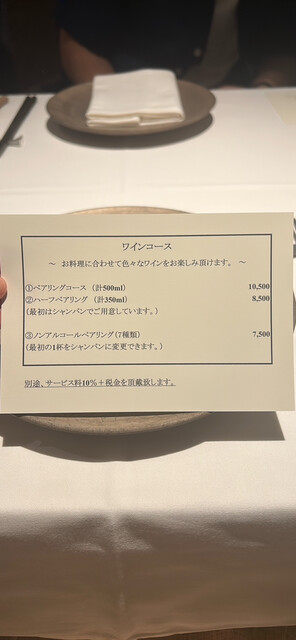 ワインコース
～ お料理に合わせて色々なワインをお楽しみ頂けます。 ～
①ペアリングコース （計500ml） 10,500
②ハーフペアリング （計350ml） 8,500
（最初はシャンパンでご用意しています。）
③ノンアルコールペアリング（7種類） 7,500
（最初の1杯をシャンパンに変更できます。）
別途、サービス料10％＋税金を頂戴致します。